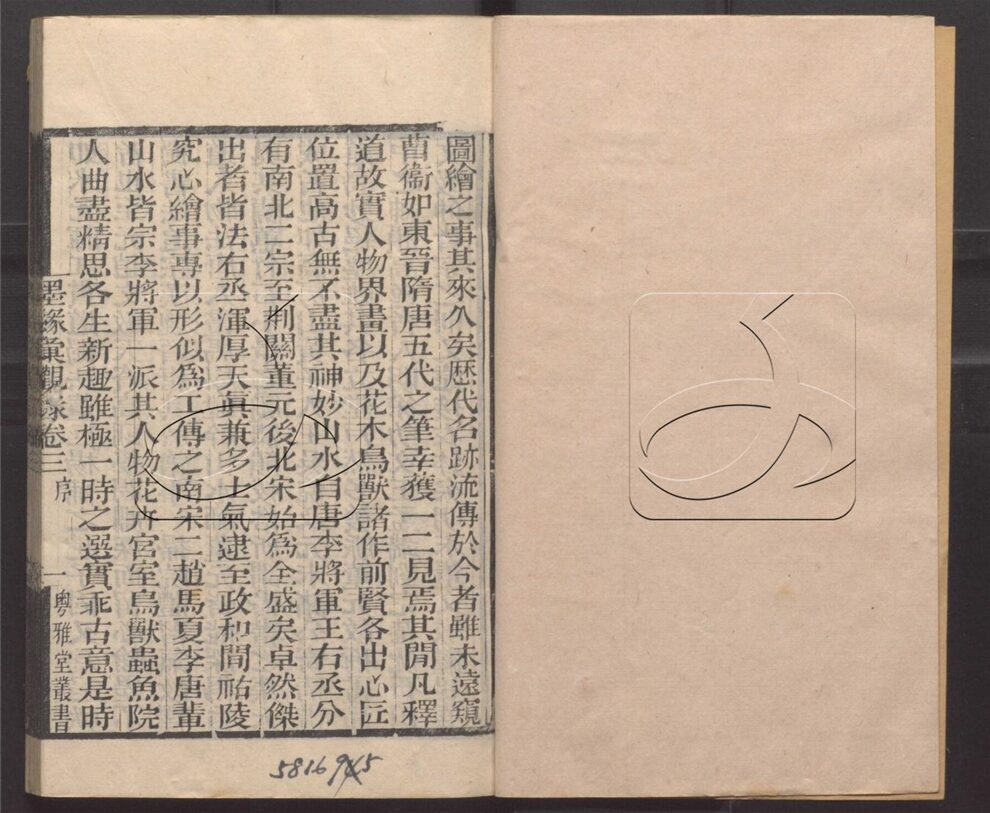 圖繪之事其來久矣歷代名跡流傳於今者雖未遠窺
曹衞如東晉隋唐五代之筆幸獲一二見焉其閒凡釋
道故實人物界畫以及花木鳥獸諸作前賢各出心匠
位置高古無不盡其神妙山水自唐李將軍王右丞分
有南北二宗至荆關董元後北宋始爲全盛矣卓然傑
出者皆法右丞渾厚天眞兼多士氣逮至政和間祐陵
究心繪事專以形似爲工傳之南宋二趙馬夏李唐輩
山水皆宗李將軍一派其人物花卉宫室鳥獸蟲魚院
人曲盡精思各生新趣雖極一時之選實乖古意是時
墨緣彙觀錄卷三 序 一 粵雅堂叢書
5816945